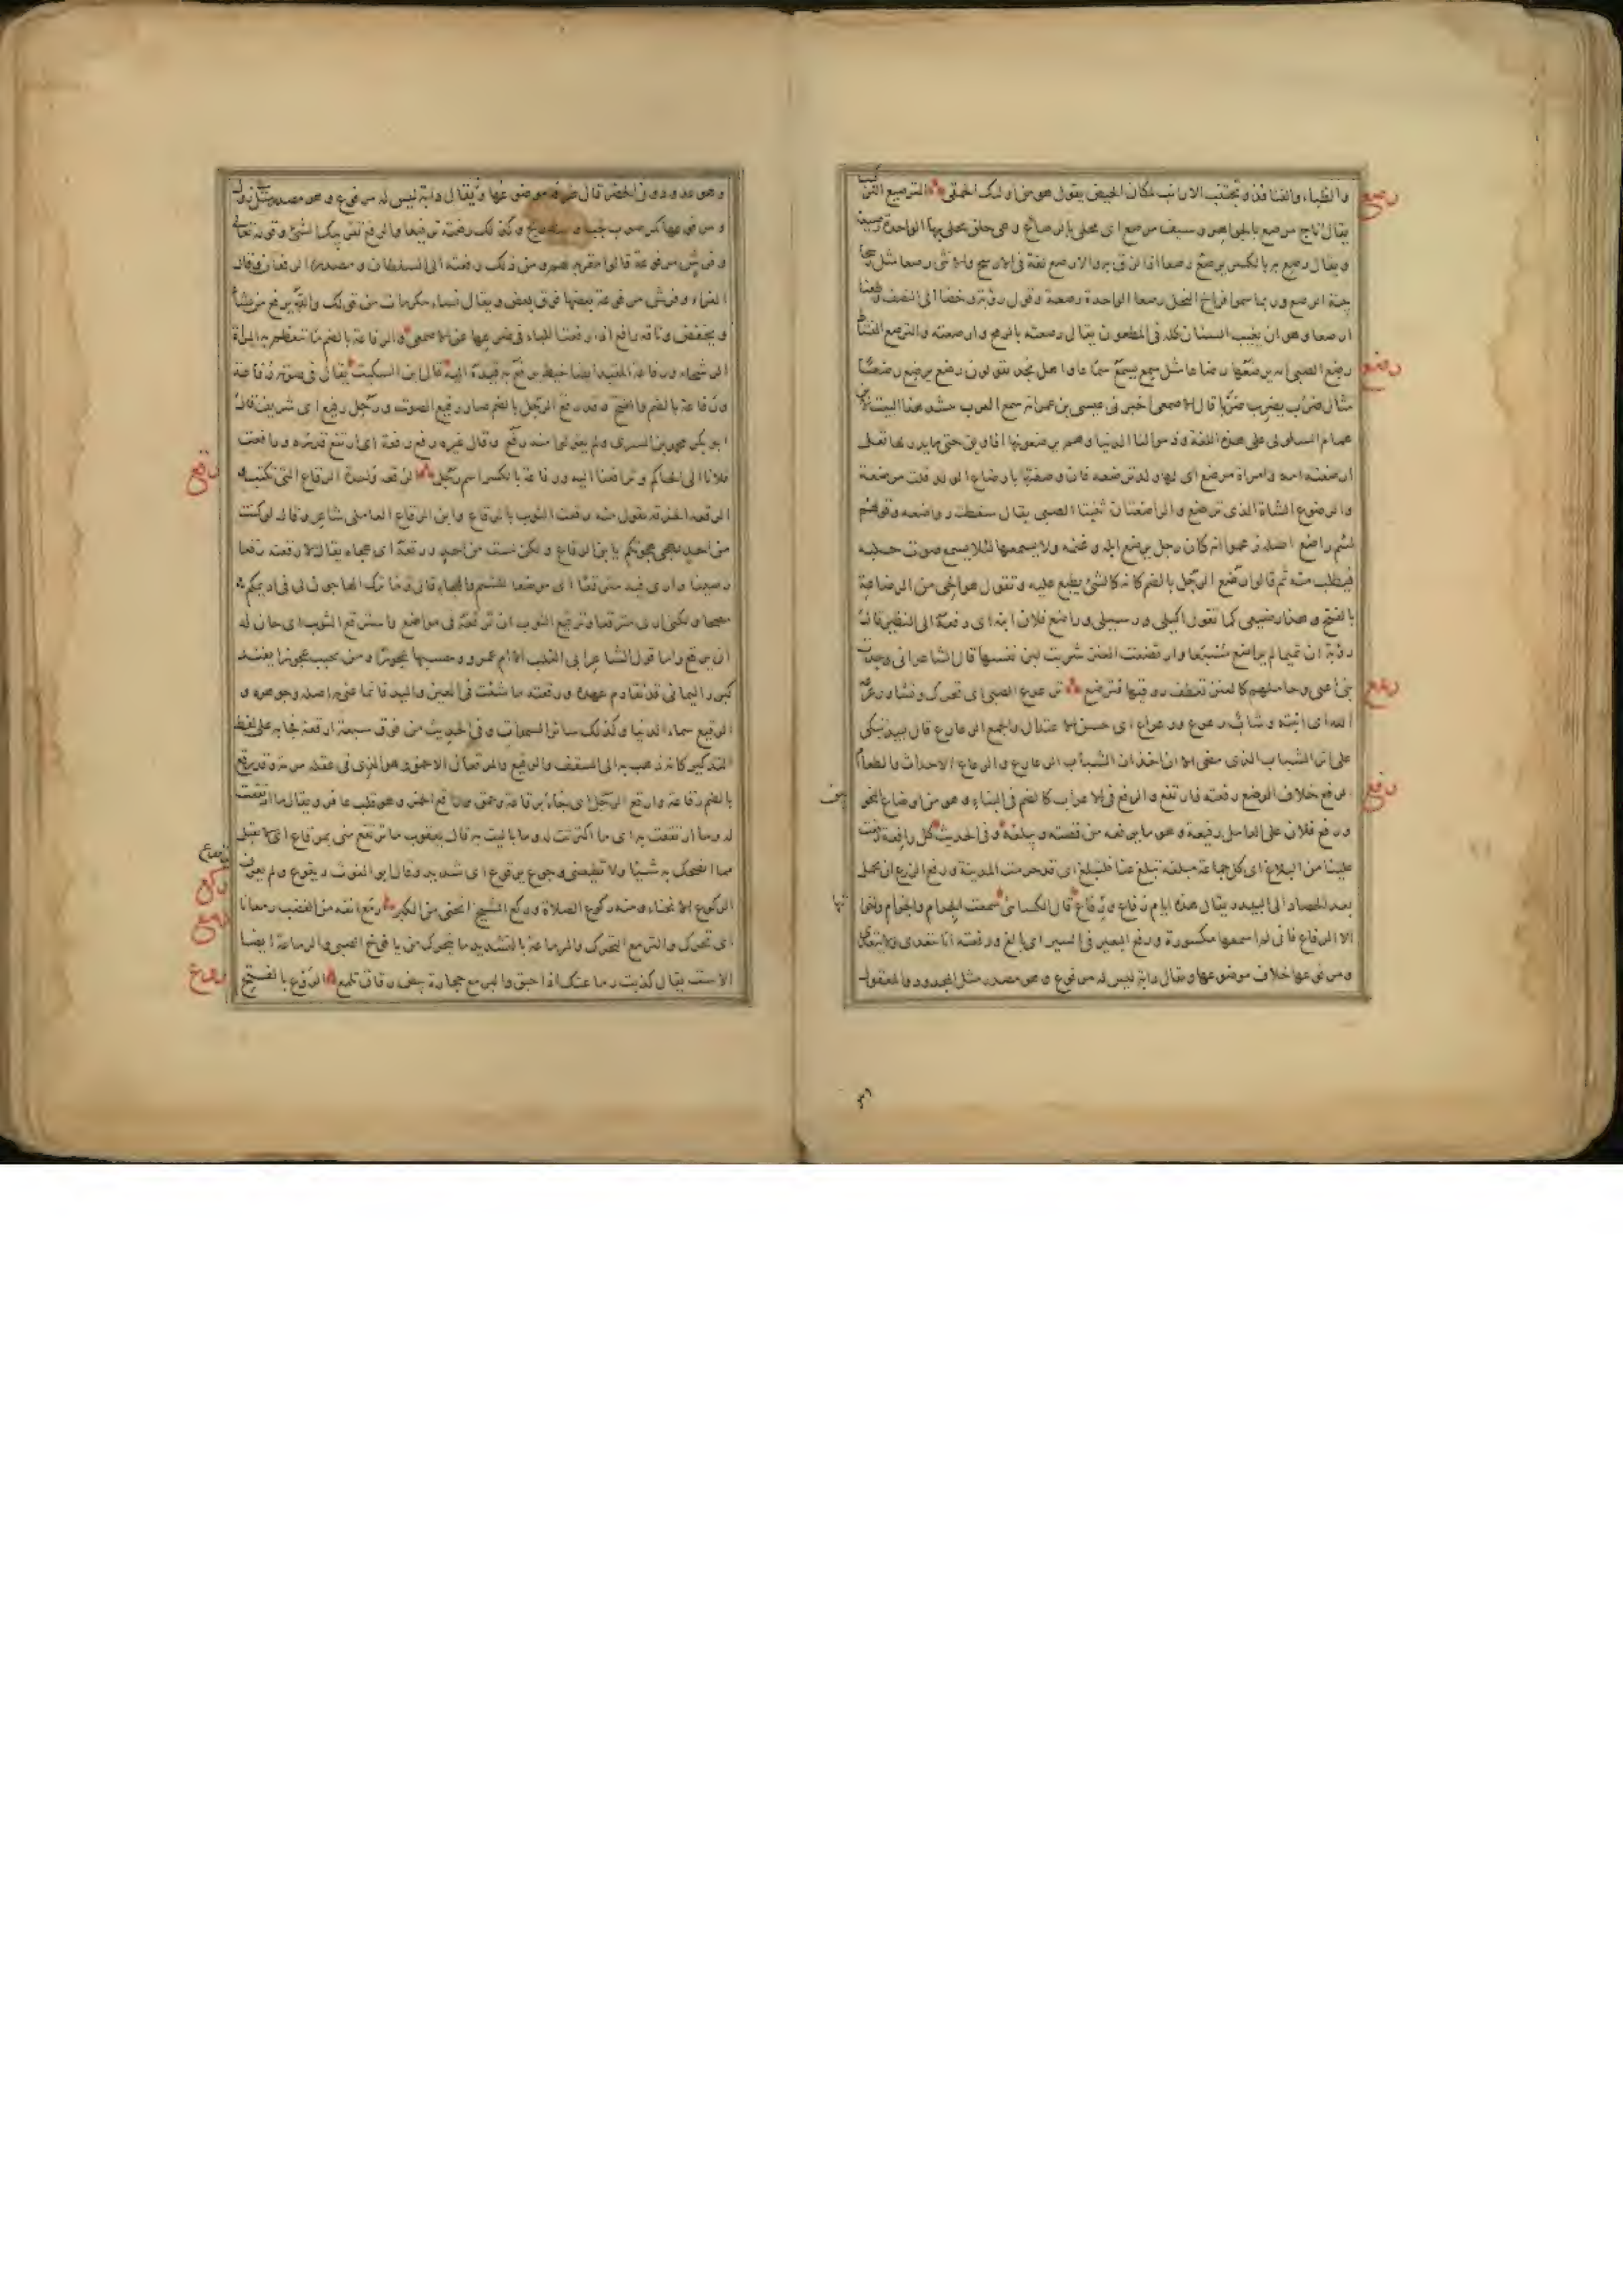 والظباء والقنافذ وتجتنب الارانب لمكان الحيض يقول هو من اولئك الحمقى الترصيع التركيب
رصع
يقال تاج مرصع بالجواهر وسيف مرصع اى محلى بالرصائع وهى حلق يحلى بها الواحدة رصيعة
ويقال رصع به بالكسر يرصع رصعا اذا لزق به والارصع لغة فى الارسح والانثى رصعا مثل
وربما سموا فراخ النحل رصعا الواحدة رصعة وقول رؤبة وخضا الى النصف وطعنا
ارصعا وهو ان يغيب السنان كله فى المطعون يقال رصعته بالرمح وارصعته والترصع النشاط
رضع
رضع الصبى امه يرضعها رضاعا مثل سمع يسمع سمعا واهل نجد يقولون رضع يرضع رضعا
مثال ضرب يضرب ضربا قال الاصمعى اخبرنى عيسى بن عمر انه سمع العرب تنشد هذا البيت لابن
همام السلولى على هذه اللغة وذموا لنا الدنيا وهم يرضعونها افاويق حتى ما يدر لها ثعل
ارضعته امه وامراة مرضع اى لها ولد ترضعه فان وصفتها بارضاع الولد قلت مرضعة
والرضوع الشاة الذى ترضع والراضعتان ثنيتا الصبى يقال سقطت رواضعه وقولهم
لئيم راضع اصله زعموا انه كان رجل يرضع ابله وغنمه ولا يسمعها لئلا يسمع صوت حلبه
فيطلب منه ثم قالوا رضع الرجل بالضم كانه كالشئ يطبع عليه وتقول هو اخى من الرضاعة
بالفتح وهذا رضيعى كما تقول اكيلى ورسيلى وراضع فلان ابنه اى دفعه الى الظئر قال
رؤبة ان تميما لم يراضع مسبعا وارتضعت العنز شربت لبن نفسها قال الشاعر انى وجدت
بنى اعيى وحاملهم كالعنز تعطف روقيها فترتضع ترعرع الصبى اى تحرك ونشا ورعرعه
رعع
الله اى انبته وشاب رعرع ورعراع اى حسن الاعتدال والجمع الرعارع قال لبيد تبكى
على اثر الشباب الذى مضى الا ان اخدان الشباب الرعارع والرعاع الاحداث والطغام
رفع
الرفع خلاف الوضع رفعته فارتفع والرفع فى الاعراب كالضم فى البناء وهو من اوضاع النحو
ورفع فلان على العامل رفيعة وهو ما يرفعه من قصته ويبلغه وفى الحديث كل رافعة رفعت
علينا من البلاغ اى كل جماعة مبلغة تبلغ عنا فلتبلغ اى قد حرمت المدينة ورفع الزرع ان يحمل
بعد الحصاد الى البيدر يقال هذه ايام رفاع ورفاع قال الكسائى سمعت الجرام والجرام واخواتها
الا الرفاع فانى لم اسمعها مكسورة ورفع البعير فى السير اى بالغ ورفعته انا يتعدى ولا يتعدى
ومرفوعها خلاف موضوعها ويقال دابة ليس له مرفوع وهو مصدر مثل المجلود والمعقول
٣٦
وهو عدو دون الحضر قال طرفة موضوعها ويقال دابة ليس له مرفوع وهو مصدر
ومرفوعها كمر صوب لجب وكذلك رفعته ترفيعا والرفع تقريبك الشئ وقوله تعالى
وفرش مرفوعة قالوا مقربة لهم ومن ذلك رفعته الى السلطان ومصدره الرفعان وقال
الفراء وفرش مرفوعة بعضها فوق بعض ويقال نساء مكرمات من قولك والله يرفع من يشاء
ويخفض وناقة رافع اذا رفعت اللباء فى ضرعها عن الاصمعى والرفاعة بالضم ما تتعظم به المراة
الرسحاء ورفاعة المقيد ايضا خيط يرفع به قيده اليه قال ابن السكيت يقال فى صوته رفاعة
ورفاعة بالضم والفتح وقد رفع الرجل بالضم صار رفيع الصوت ورجل رفيع اى شريف قال
ابو بكر محمد بن السرى ولم يقولوا منه رفع وقال غيره رفع رفعة اى ارتفع قدره ورافعت
فلانا الى الحاكم وترافعنا اليه ورفاعة بالكسر اسم رجل الرقعة واحدة الرقاع التى تكتب و
رقع
الرقعة الخرقة تقول منه رقعت الثوب بالرقاع وابن الرقاع العاملى شاعر وقال لو كنت
من احد يهجى هجوتكم يا بن الرقاع ولكن لست من احد ورقعه اى هجاه يقال لارقعنه رقعا
رصينا وارى فيه مترقعا اى موضعا للشتم والهجاء قال وما ترك الهاجون لى فى اديمكم
مصحا ولكنى ارى مترقعا وترقيع الثوب ان ترقعه فى مواضع واسترقع الثوب اى حان له
ان يرقع واما قول الشاعر ابى القلب الا ام عمرو وحبها عجوزا ومن يحبب عجوزا يفند
كبرد اليمانى قد تقادم عهده ورقعته ما شئت فى العين واليد فانما عنى به اصله وجوهره و
الرقيع سماء الدنيا وكذلك سائر السموات وفى الحديث من فوق سبعة ارقعة فجاء به على لفظ
التذكير كانه ذهب به الى السقف والرقيع والمرقعان الاحمق وهو الذى فى عقله مرمة وقد رقع
بالضم رقاعة وارقع الرجل اى جاء برقاعة وحمق وراقع الخمر وهو قلب عاقر ويقال ما ارتقعت
له وما ارتقعت به اى ما اكترثت له وما باليت به قال يعقوب ما ترتقع منى برقاع اى ما تقبل
مما انصحك به شيئا ولا تطيعنى وجوع يرقوع اى شديد وقال ابو الغوث ديقوع ولم يعرف
ركع
الركوع الانحناء ومنه ركوع الصلاة وركع الشيخ انحنى من الكبر رمع انفه من الغضب رمعانا
رمع
اى تحرك والترمع التحرك والرماعة بالتشديد ما يتحرك من يافوخ الصبى والرماعة ايضا
الاست يقال كذبت رماعتك اذا حبق واليرمع حجارة بيض رقاق تلمع الروع بالفتح
روع